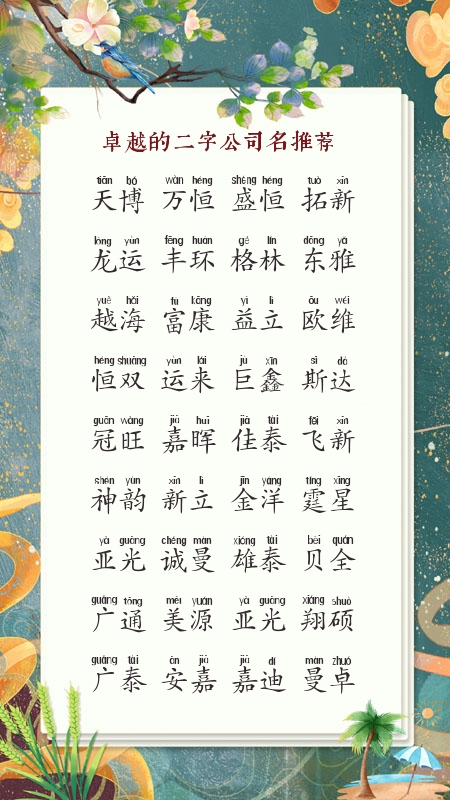 卓越的二字公司名推荐
tiān bó wàn héng shèng héng tuò xīn
天博 万恒 盛恒 拓新
lóng yùn fēng huán gé lín dōng yǎ
龙运 丰环 格林 东雅
yuè hǎi fù kāng yì lì ōu wéi
越海 富康 益立 欧维
héng shuāng yùn lái jù xīn sī dá
恒双 运来 巨鑫 斯达
guān wàng jiā huī jiā tài fēi xīn
冠旺 嘉晖 佳泰 飞新
shén yùn xīn lì jīn yáng tíng xīng
神韵 新立 金洋 霆星
yà guāng chéng màn xióng tài bèi quán
亚光 诚曼 雄泰 贝全
guǎng tōng měi yuán yà guāng xiáng shuò
广通 美源 亚光 翔硕
guǎng tài ān jiā jiā dí màn zhuó
广泰 安嘉 嘉迪 曼卓